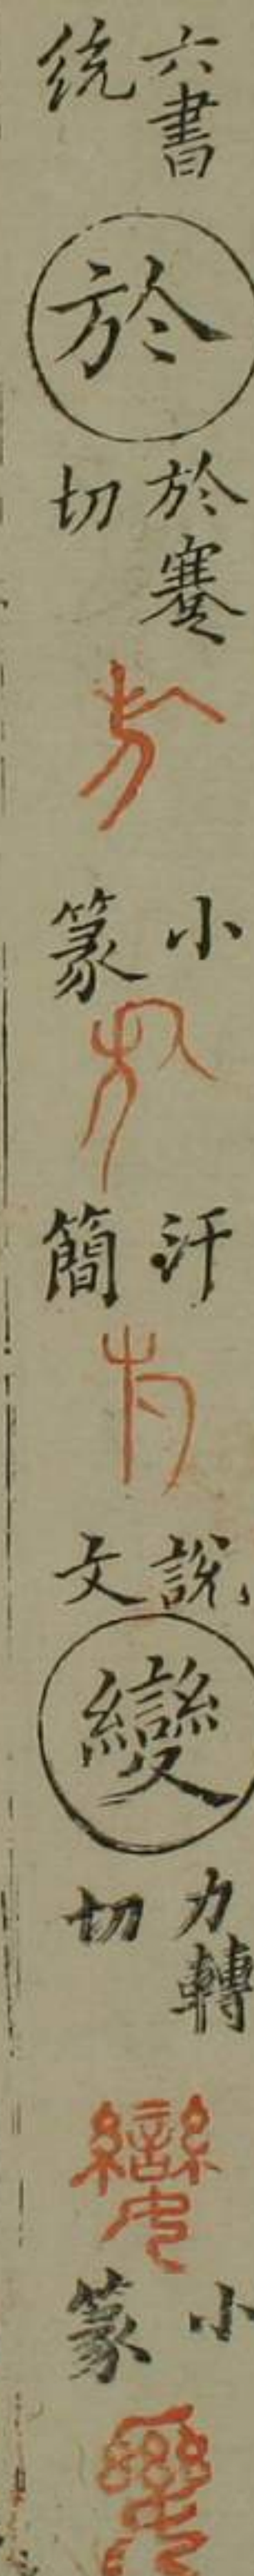 六書
统
於
於蹇
切
小
篆
汗
簡
說
文
變
力轉
切
小
篆